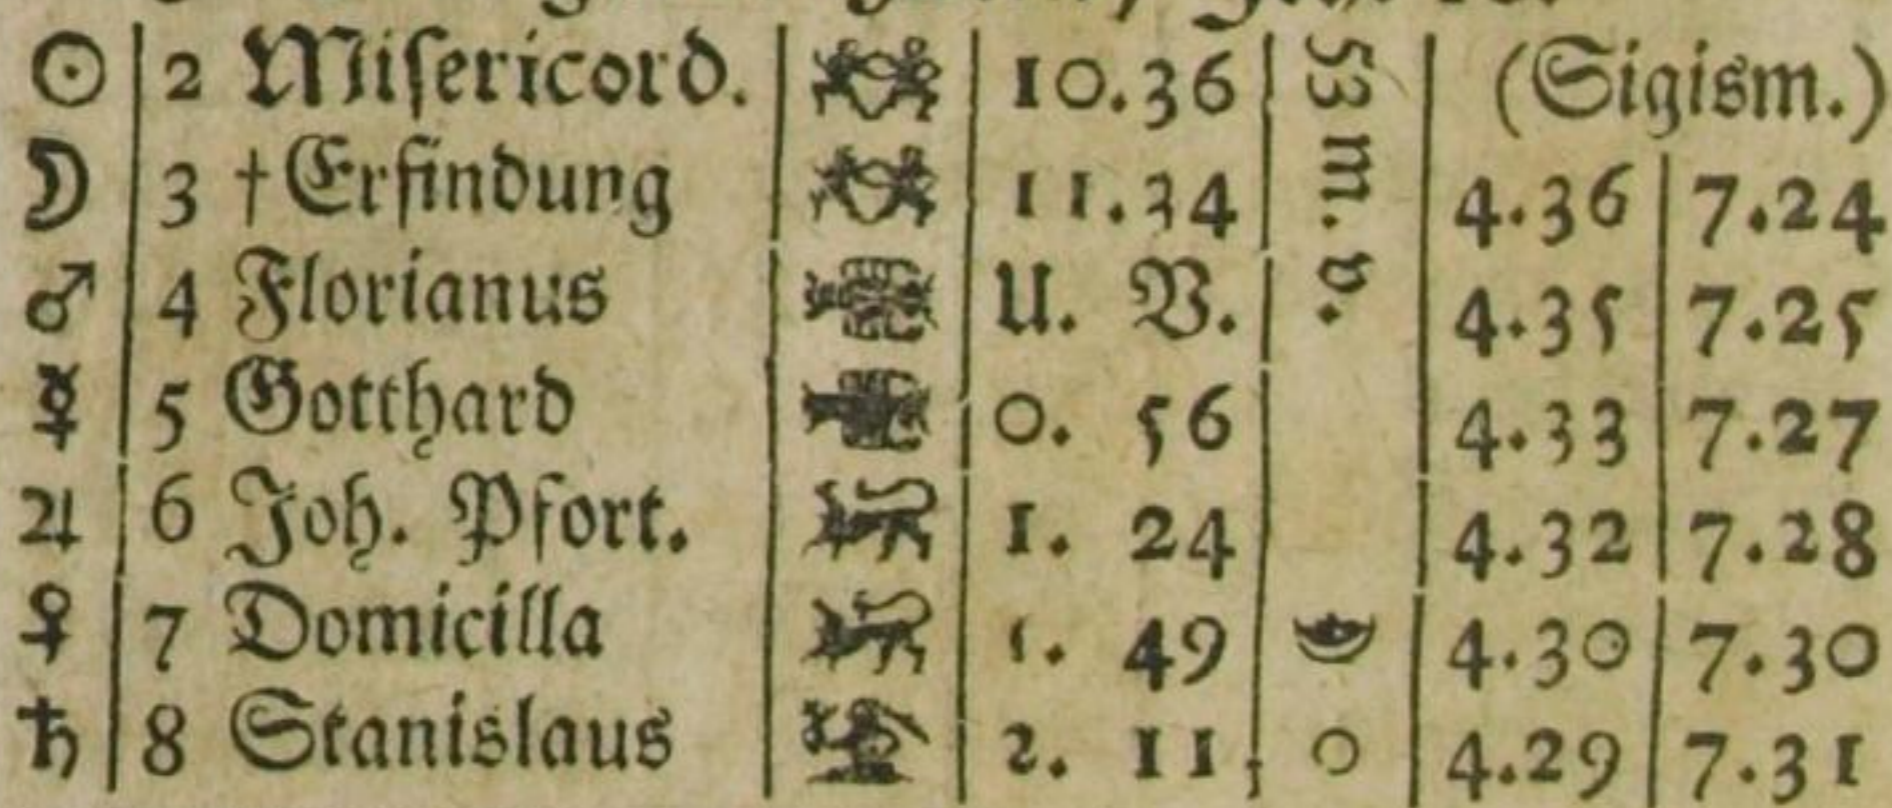 ☉ 2 Miſericord. 10.36 53 m. v. (Sigism.)
☽ 3 †Erfindung 11.34 4.36 7.24
♂ 4 Florianus U. V. 4.35 7.25
☿ 5 Gotthard 0. 56 4.33 7.27
♃ 6 Joh. Pfort. 1. 24 4.32 7.28
♀ 7 Domicilla 1. 49 4.30 7.30
♄ 8 Stanislaus 2. 11 ○ 4.29 7.31